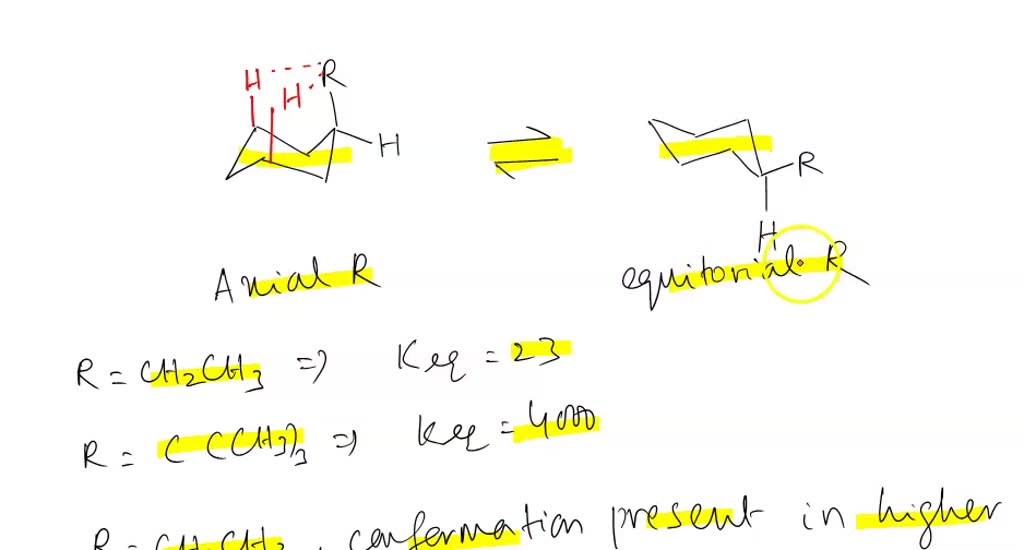 H R
H
H
R
H
Axial R
equitorial R
R = CH2CH3 => Keq = 23
R = C(CH3)3 => Keq = 4000
R = CH2CH3, conformation present in higher